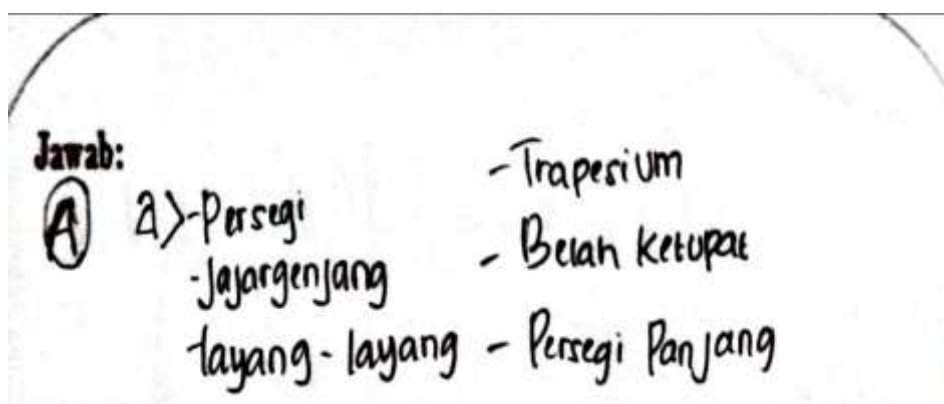 Jawab:
A a) - Persegi
- Jajargenjang
- layang - layang
- Trapesium
- Belah Ketupat
- Persegi Panjang